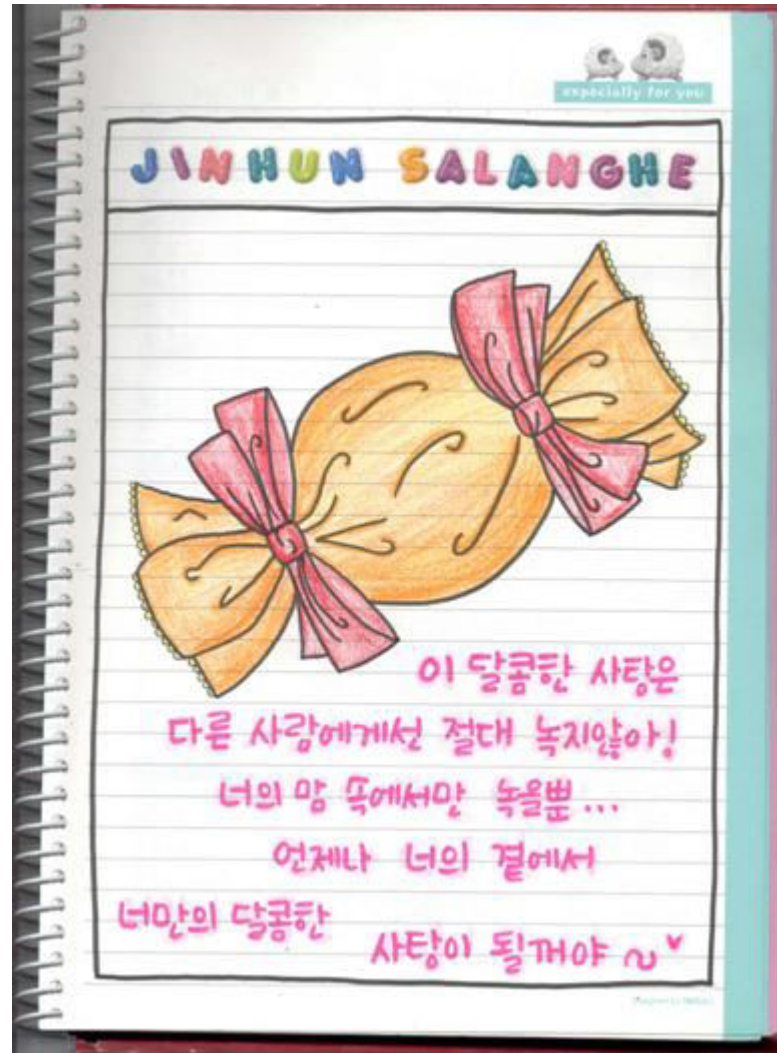 expecially for you
JINHUN SALANGHE
이 달콤한 사탕은
다른 사람에게선 절대 녹지않아!
너의 맘 속에서만 녹을뿐...
언제나 너의 곁에서
너만의 달콤한
사탕이 될꺼야~♥